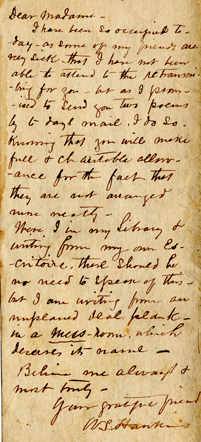 Dear Madame -
I have been so occupied to-
day - as some of my friends are
very sick - that I have not been
able to attend to the retranscri-
bing for you - but as I prom-
ised to send you two poems
by to day's mail, I do so.
Knowing that you will make
full & charitable allow-
ance for the fact that
they are not arranged
more neatly -
Were I in my Library &
writing from my own Es-
critoire, there should be
no need to speak of this -
but I am writing from an
unplaned deal plank -
in a Mess-room, which
deserves its name -
Believe me always &
most truly -
Your grateful friend
W. S. Hawkins